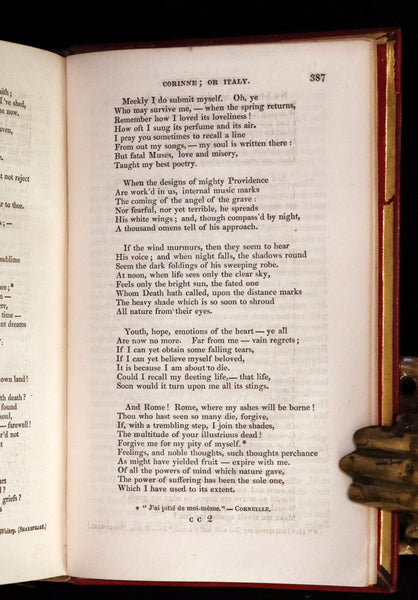 aith;
I've shed,
e now.
aven,
t not reject
r to thee.
s; —
sublime
;*
time —
nt dreams
own land!
th death?
found
soul
— farewell!
'd not
t
griefs?
s
Wishes. (SHAKSPEARE.)
CORINNE; OR ITALY. 387
Meekly I do submit myself. Oh, ye
Who may survive me, — when the spring returns,
Remember how I loved its loveliness!
How oft I sung its perfume and its air.
I pray you sometimes to recall a line
From out my songs, — my soul is written there:
But fatal Muses, love and misery,
Taught my best poetry.
When the designs of mighty Providence
Are work'd in us, internal music marks
The coming of the angel of the grave:
Nor fearful, nor yet terrible, he spreads
His white wings; and, though compass'd by night,
A thousand omens tell of his approach.
If the wind murmurs, then they seem to hear
His voice; and when night falls, the shadows round
Seem the dark foldings of his sweeping robe.
At noon, when life sees only the clear sky,
Feels only the bright sun, the fated one
Whom Death hath called, upon the distance marks
The heavy shade which is so soon to shroud
All nature from their eyes.
Youth, hope, emotions of the heart — ye all
Are now no more. Far from me — vain regrets;
If I can yet obtain some falling tears,
If I can yet believe myself beloved,
It is because I am about to die.
Could I recall my fleeting life, — that life,
Soon would it turn upon me all its stings.
And Rome! Rome, where my ashes will be borne!
Thou who hast seen so many die, forgive,
If, with a trembling step, I join the shades,
The multitude of your illustrious dead!
Forgive me for my pity of myself.*
Feelings, and noble thoughts, such thoughts perchance
As might have yielded fruit — expire with me.
Of all the powers of mind which nature gave,
The power of suffering has been the sole one,
Which I have used to its extent.
* "J'ai pitié de moi-même." — CORNEILLE.
C C 2